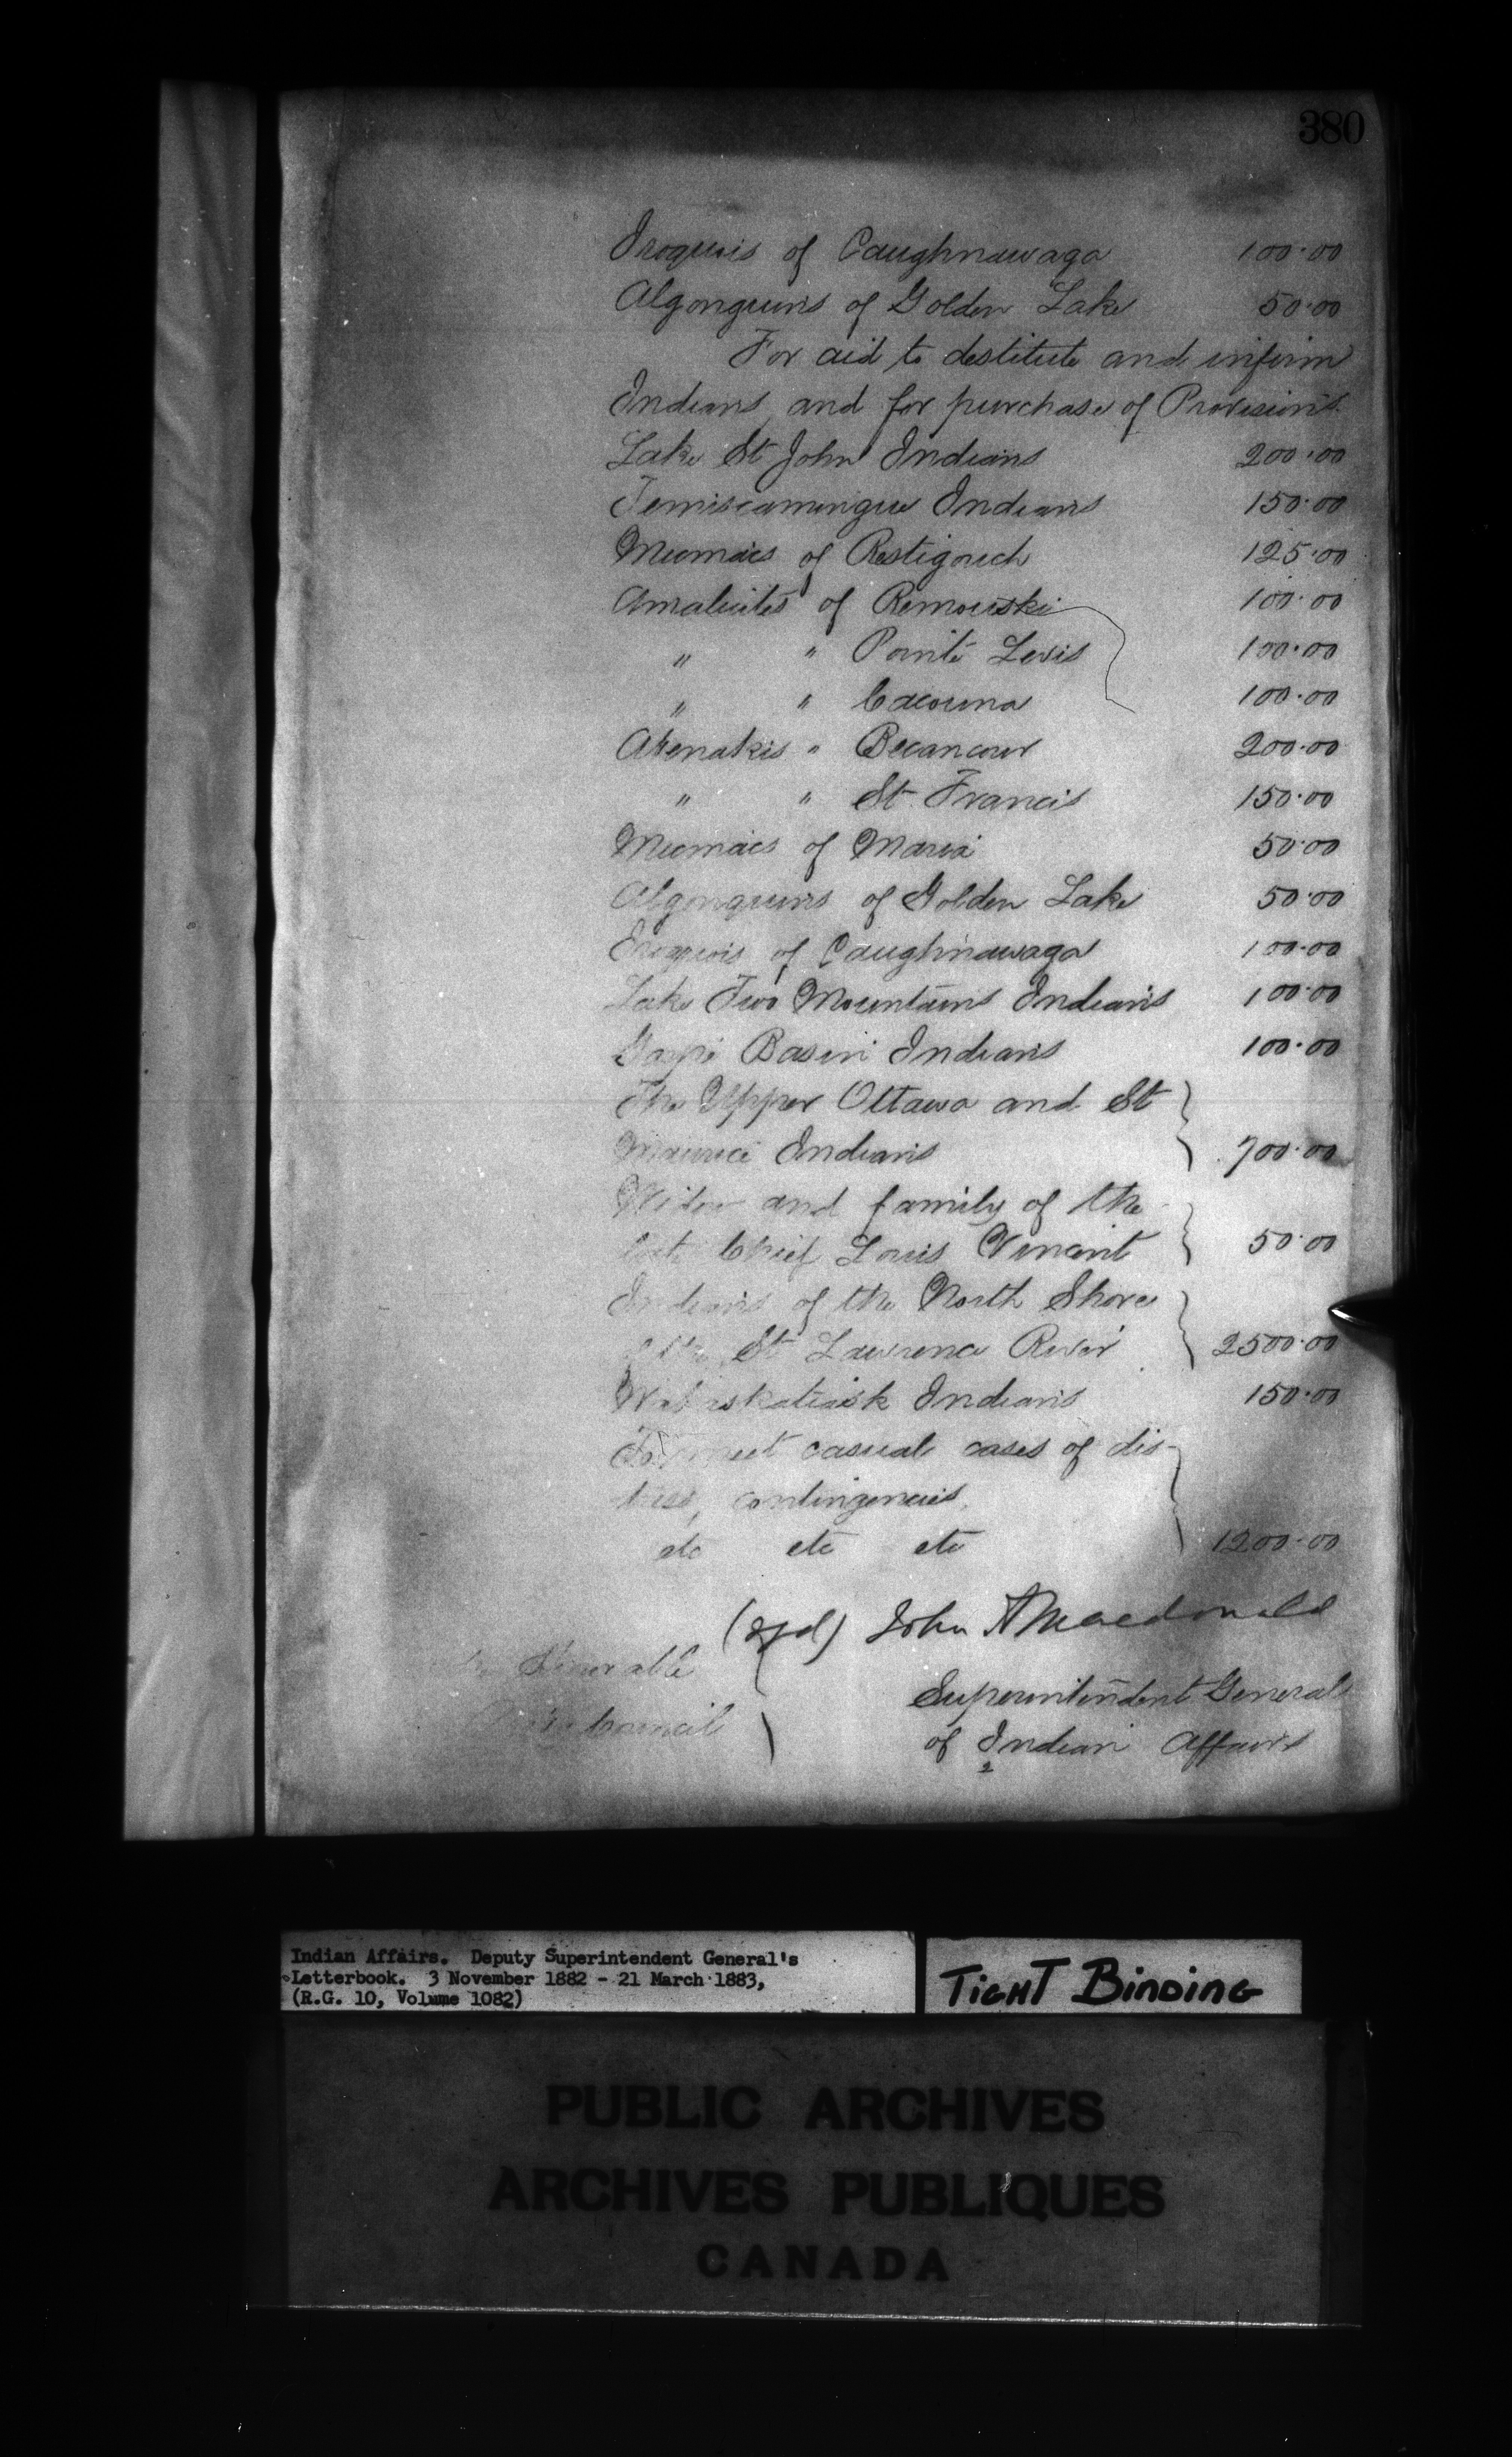 380
Iroquois of Caughnawaga 100.00
Algonquins of Golden Lake 50.00
For aid to destitute and infirm
Indians, and for purchase of Provisions
Lake St John Indians 200.00
Temiscamingue Indians 150.00
Micmacs of Restigouch 125.00
Amalicites of Remouski 100.00
" " Pointe Levis 100.00
" " Cacouna 100.00
Abenakis " Becancour 200.00
" " St Francis 150.00
Micmacs of Maria 50.00
Algonquins of Golden Lake 50.00
Iroquois of Caughnawaga 100.00
Lake Two Mountains Indians 100.00
Gaspé Basin Indians 100.00
The Upper Ottawa and St
Maurice Indians 700.00
Widow and family of the
late Chief Louis Vincent 50.00
Indians of the North Shore
of the St Lawrence River 2500.00
Indians 150.00
To meet casual cases of dis-
tress, contingencies,
etc etc etc 1200.00
(sgd) John A Macdonald
Honorable
Council
Superintendent General
of Indian Affairs
2
Indian Affairs. Deputy Superintendent General's
Letterbook. 3 November 1882 - 21 March 1883,
(R.G. 10, Volume 1082)
TIGHT BINDING
PUBLIC ARCHIVES
ARCHIVES PUBLIQUES
CANADA